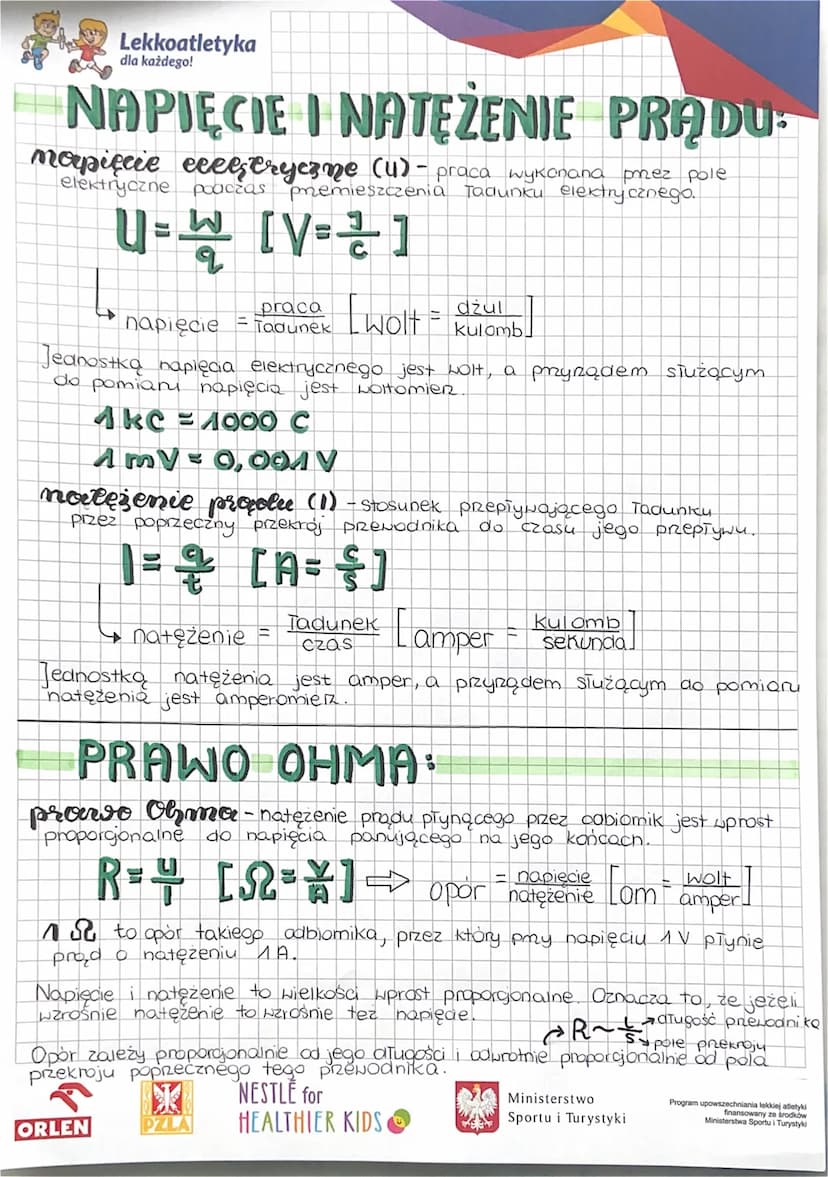 Lekkoatletyka
dla każdego!
NAPIĘCIE I NATĘŻENIE PRĄDU:
napięcie elektryczne (U) - praca wykonana przez pole
elektryczne podczas przemieszczenia ładunku elektrycznego.
U = W/q [V = J/C]
napięcie = praca/ładunek [wolt = dżul/kulomb]
Jednostką napięcia elektrycznego jest wolt, a przyrządem służącym
do pomiaru napięcia jest woltomierz.
1 kC = 1000 C
1 mV = 0,001 V
natężenie prądu (I) - stosunek przepływającego ładunku
przez poprzeczny przekrój przewodnika do czasu jego przepływu.
I = q/t [A = C/S]
natężenie = ładunek/czas [amper = kulomb/sekunda]
Jednostką natężenia jest amper, a przyrządem służącym do pomiaru
natężenia jest amperomierz.
PRAWO OHMA:
prawo Ohma - natężenie prądu płynącego przez odbiornik jest wprost
proporcjonalne do napięcia panującego na jego końcach.
R = U/I [Ω = V/A] ⇒ opór = napięcie/natężenie [om = wolt/amper]
1 Ω to opór takiego odbiornika, przez który przy napięciu 1 V płynie
prąd o natężeniu 1 A.
Napięcie i natężenie to wielkości wprost proporcjonalne. Oznacza to, że jeżeli
wzrośnie natężenie to wzrośnie też napięcie.
R ~ L/S → długość przewodnika
pole przekroju
Opór zależy proporcjonalnie od jego długości i odwrotnie proporcjonalnie od pola
przekroju poprzecznego tego przewodnika.
ORLEN
PZLA
NESTLÉ for
HEALTHIER KIDS
Ministerstwo
Sportu i Turystyki
Program upowszechniania lekkiej atletyki
finansowany ze środków
Ministerstwa Sportu i Turystyki